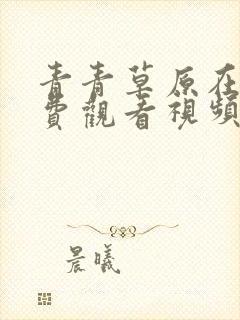 青青草原在
費觀看視頻
晨曦